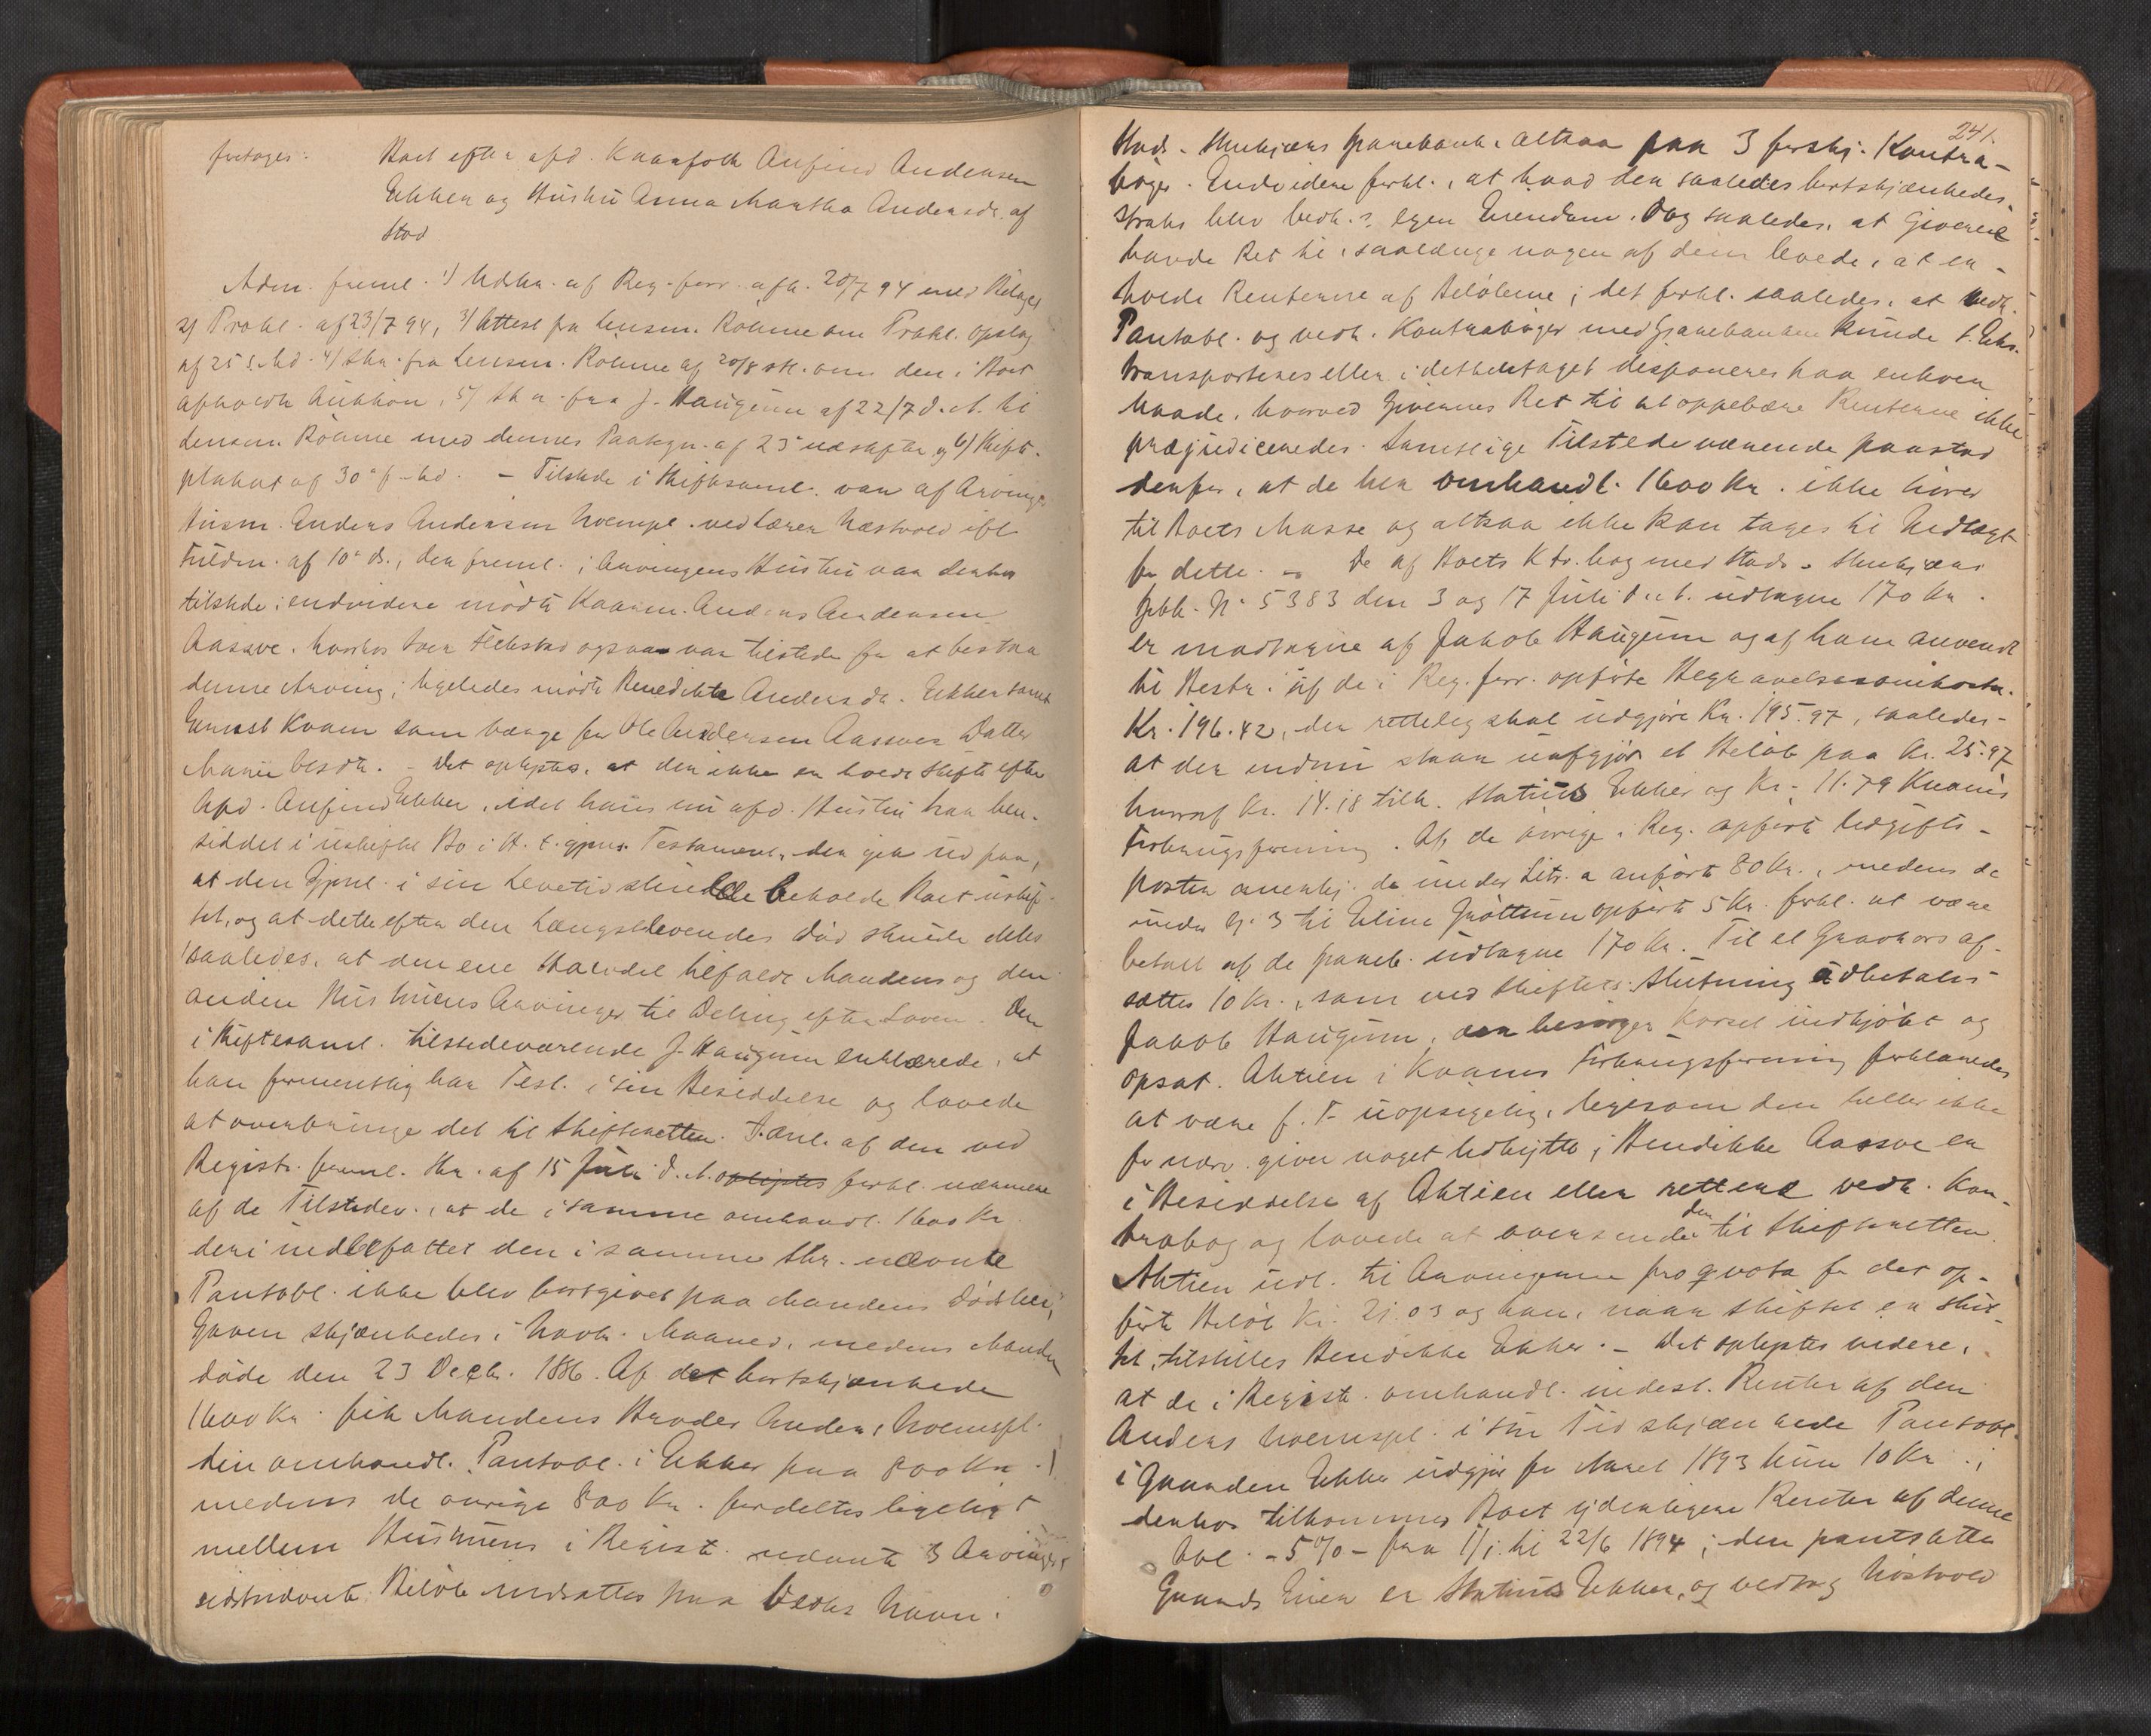 foretages: Boet efter afd. Kaarfolk Anfind Andersen
Ekker og Hustru Anna Martha Andersdr. af
Stod
Adm. freml. 1) Udskr. af Reg.forr. afh. 20/7 94 med Bilager
2) Prokl. af 23/7 94, 3) Attest fra Lensm. Rohme om Prokl. opslag
af 25 s. Md. 4) Skr. fra Lensm. Röhme af 20/8 om den i Boet
afholdte Auktion, 5) Skr. fra J. Haugum af 22/7 d. A. til
Lensm. Röhme med dennes Paategn. af 23 og 6) Skifte-
plakat af 30 f. Md. – Tilstede i Skiftesaml. var af Arvinger
Husm. Anders Andersen ved Lærer Næstvold ifl.
Fuldm. af 10 ds., der freml.; Arvingens Hustru var derhos
tilstede; endvidere mødte Kaarm. Anders Andersen
Aasve, hvorhos Sven også var tilstede for at bistaa
denne Arving; ligeledes mødte Benedikte Andersdr. Ekker samt
Ernst Kvam som Værge for Ole Andersen Aassves Datter
Marie – Det oplystes, at der ikke er holdt Skifte efter
Afd. Anfind Ekker, idet hans nu afd. Hustru har hen-
siddet i uskiftet Bo i H. t. gjens. Testament, der gik ud paa,
at den Gjenl. i sin Levetid skulde beholde Boet uskif-
tet, og at dette efter den Længstlevendes Død skulde deles
saaledes, at den ene Halvdel tilfaldt Mandens og den
anden Hustruens Arvinger til Deling efter Loven. Den
i Skiftesaml. tilstedeværende J. Haugum erklærede, at
han formentlig har Test. i sin Besiddelse og lovede
at overbringe det til Skifteretten. I Anl. af den ved
Registr. freml. Skr. af 15 Juli d. A. oplystes forkl. nærmere
af de Tilstedev., at de i samme omhandl. 1600 Kr.
deri indbefattet den i samme Skr. nævnte
Pantobl. ikke blev bortgivet paa Mandens Dödsleie;
Gaven skjænkedes i Novbr. Maaned, medens Manden
döde den 23 Decbr. 1886. Af det bortskjænkede
1600 Kr. fik Mandens Broder Anders
den omhandl. Pantobl. i Ekker paa 800 Kr.
medens de övrige 800 Kr. fordeltes ligeligt
mellem Hustruens i Regist. nævnte 3 Arvinger
sidstnævnte Beløb indsattes paa Vedks Navn i
241.
Stods. Sparebank, altsaa paa 3 forskj. Kontra-
böger. Endvidere forkl., at hvad der saaledes bortskjænkedes,
straks blev vedk.s egen Eiendom. Dog saaledes, at Giverne
havde Ret til, saalænge nogen af dem levede, at er-
holde Renterne af Beløbene; det forkl. saaledes, at vedk.
Pantobl. og vedk. Kontraböger med Sparebanken kunde f. Eks.
transporteres eller i det hele taget disponeres paa enhver
Maade, hvorved Givernes Ret til at oppebære Renterne ikke
præjudiceredes. Samtlige Tilstedeværende paastod
derfor, at de her omhandl. 1600 Kr. ikke hörer
til Boets Masse og altsaa ikke kan tages til Indtægt
for dette. – De af Boets Ktr.bog med Stods
Spbk. N. 5383 den 3 og 17 Juli d. A. udtagne 170 Kr.
er modtagne af Jakob Haugum og af ham anvendt
til Bestr. af de i Reg. forr. opförte Begravelsesomkostn.
Kr. 196.42, der rettelig skal udgjöre Kr. 195.97, saaledes
at der endnu staar uafgjort et Beløb paa Kr. 25.97
hvoraf Kr. 14.18 tilk. Ekker og Kr. 11.79 Kvams
Forbrugsforening. Af de övrige i Reg. opförte Udgifts-
poster anerkj. de under Litr. a anförte 80 Kr., medens de
under N. 3 til Eline Gröttum opförte 5 Kr. forkl. at være
betalt af de udtagne 170 Kr. Til et Gravkors af-
sættes 10 Kr., som ved Skiftets Slutning udbetales
Jakob Haugum, der besörger Korset indkjöbt og
opsat. Aktien i Kvams Forbrugsforening forklaredes
at være f. T. uopsigelig, ligesom den heller ikke
for nærv. giver noget Udbytte; Bendikke Aassve er
i Besiddelse af Aktien eller rettere vedk. Kon-
trabog og lovede at oversende den til Skifteretten.
Aktien udl. til Arvingerne pro qvota for det op-
förte Beløb Kr. 21.03 og kan, naar Skiftet er slut-
tet, tilstilles Bendikke Ekker. – Det oplystes videre,
at de i Registr. omhandl. indest. Renter af den
Anders i sin Tid skjænkede Pantobl.
i Gaarden Ekker udgjör for Aaret 1893 kun 10 Kr.;
derhos tilkommer Boet yderligere Renter af denne
Obl. – 5 % – fra 1/1 til 22/6 1894; den pantsatte
Gaards Eier er Ekker, og vedtog Næstvold